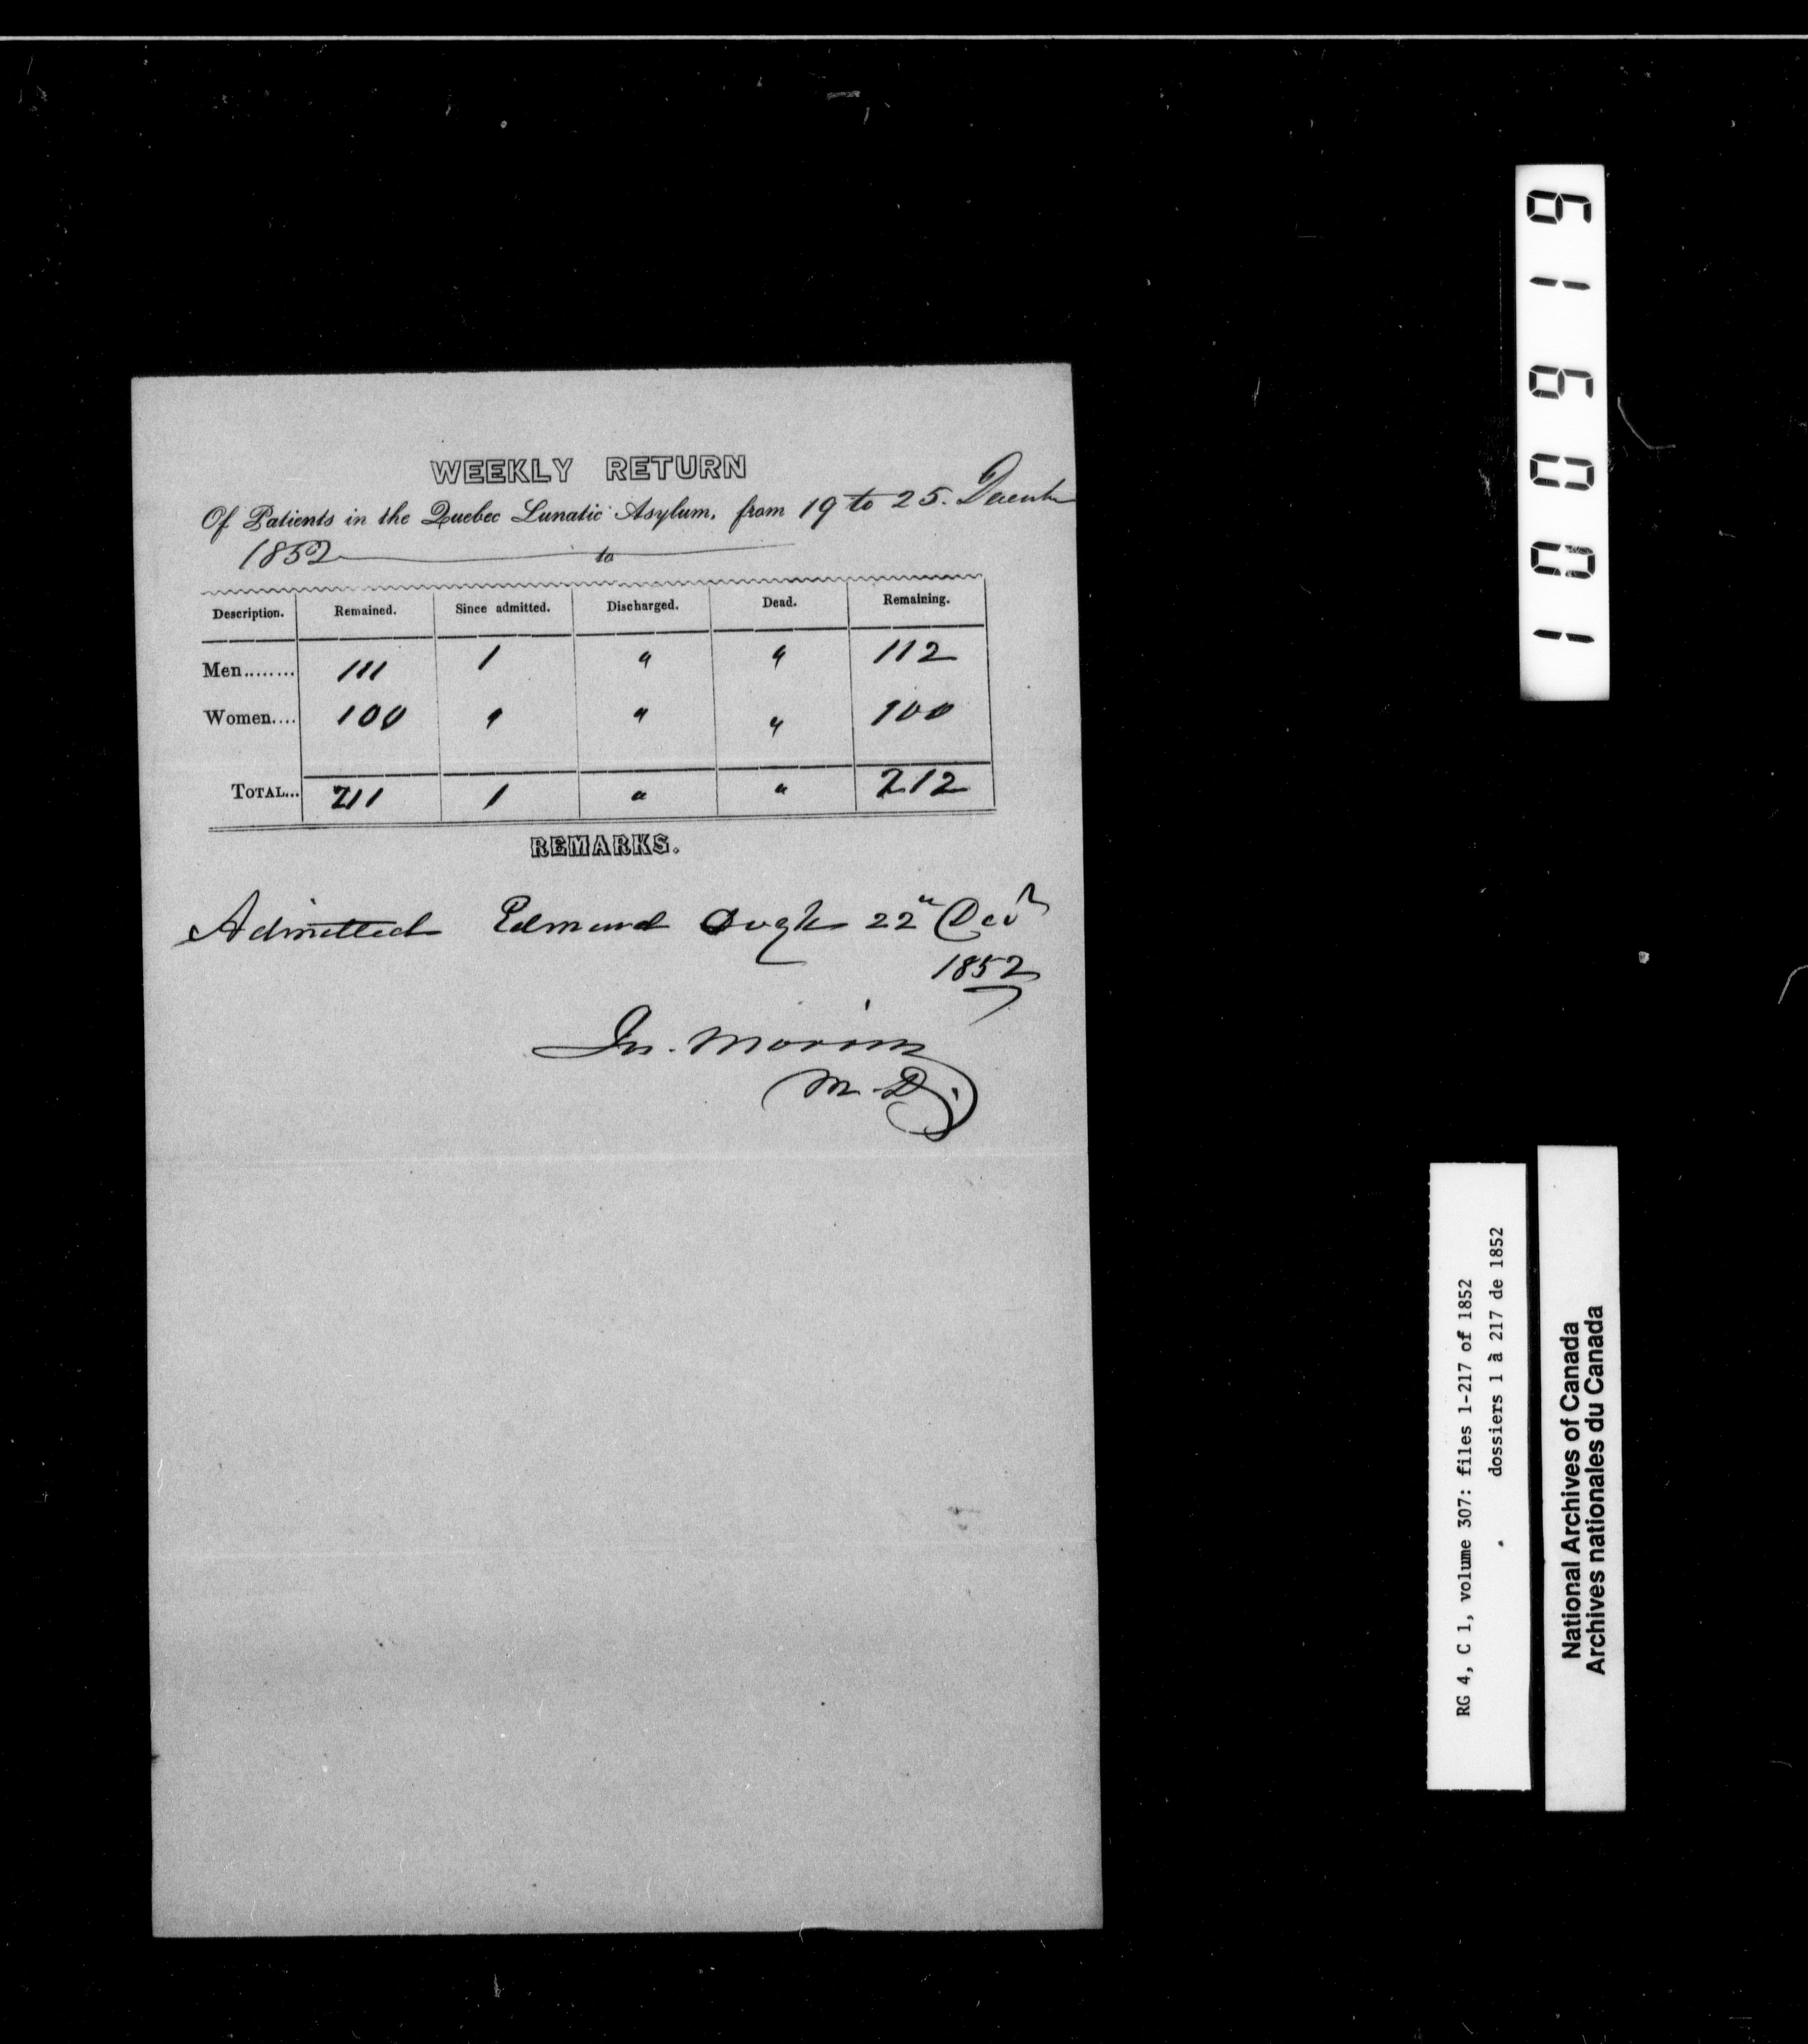 WEEKLY RETURN
Of Patients in the Quebec Lunatic Asylum, from 19 to 25. December
1852 to
Description. Remained. Since admitted. Discharged. Dead. Remaining.
Men........ 111 1 " " 112
Women.... 100 " " " 100
TOTAL... 211 1 " " 212
REMARKS.
Admitted Edmund 22" Decr
1852
Jn. Morrin
M.D.
1 0 0 9 1 9
RG 4, C 1, volume 307: files 1-217 of 1852
dossiers 1 à 217 de 1852
National Archives of Canada
Archives nationales du Canada